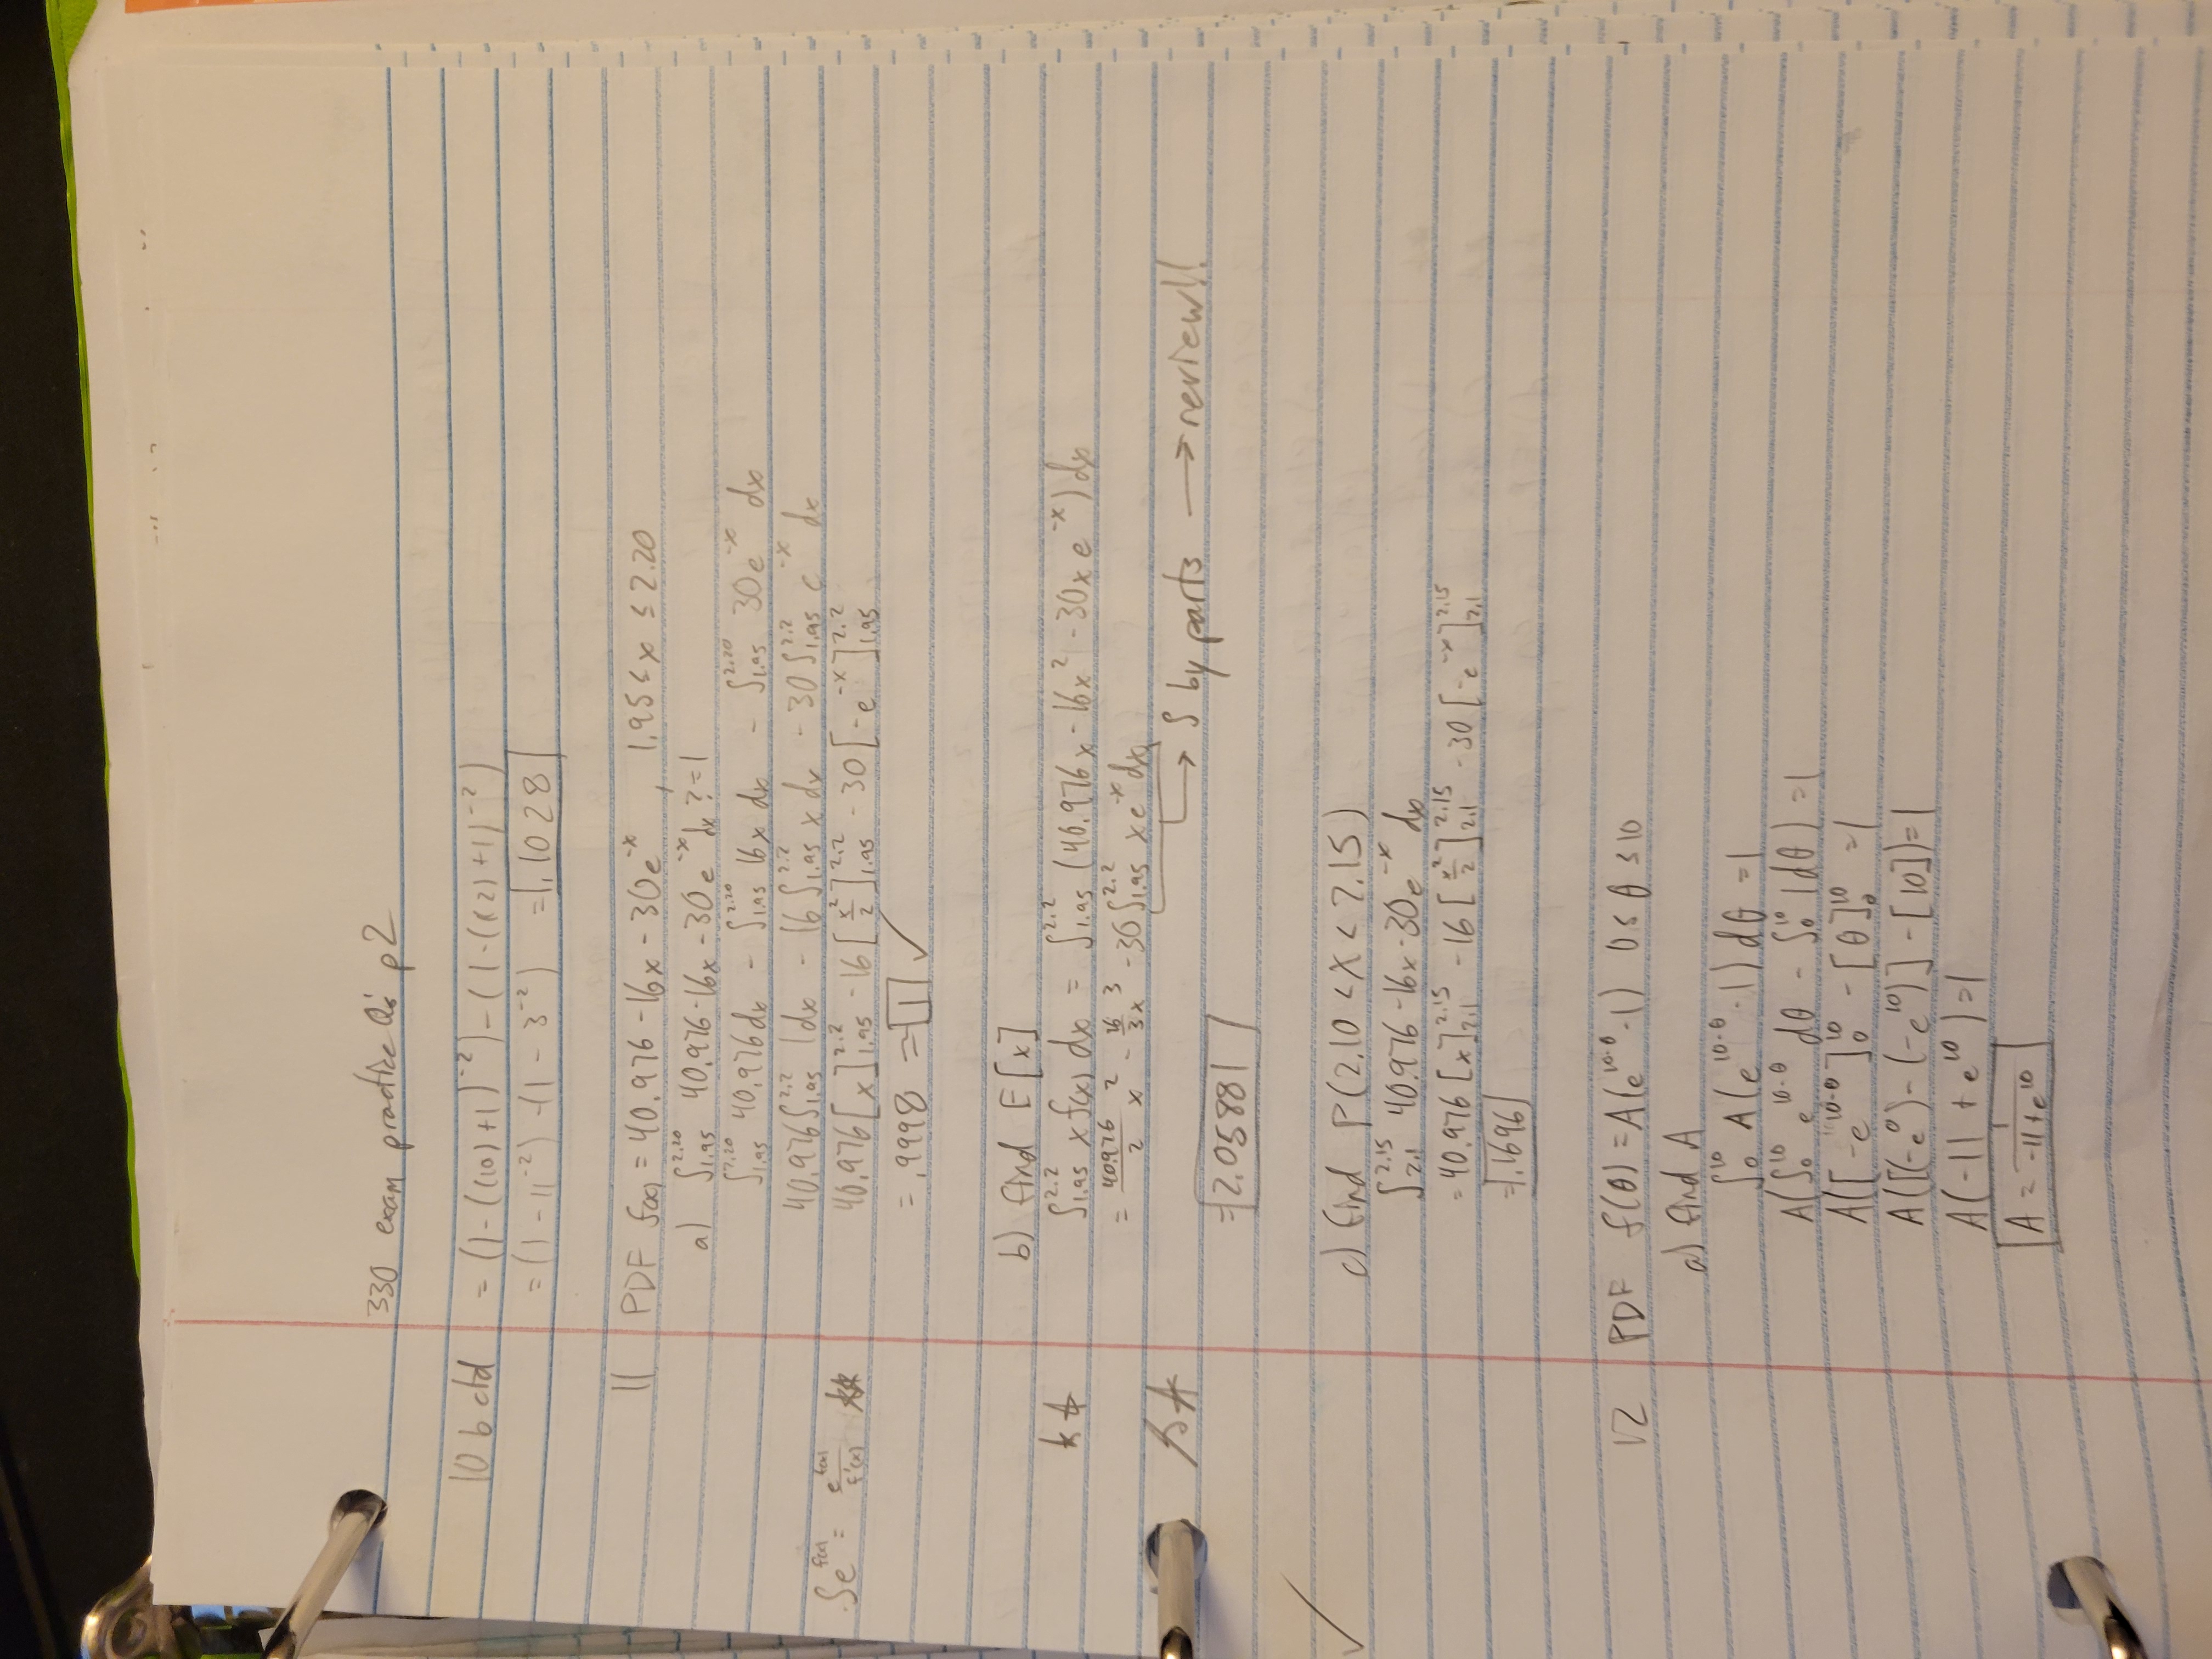 330 exam practice Q's p2
10 b ctd = (1-((10)+1)^-2) - (1-((2)+1)^-2)
= (1-11^-2) - (1-3^-2) = .1028
11 PDF f(x) = 40.976 - 16x - 30e^-x , 1.95 ≤ x ≤ 2.20
a) ∫_1.95^2.20 40.976 - 16x - 30e^-x dx ?= 1
∫_1.95^2.20 40.976 dx - ∫_1.95^2.20 16x dx - ∫_1.95^2.20 30e^-x dx
40.976 ∫_1.95^2.2 1dx - 16 ∫_1.95^2.2 x dx - 30 ∫_1.95^2.2 e^-x dx
∫e^f(x) = e^f(x)/f'(x) ★★ 40.976[x]_1.95^2.2 - 16[x^2/2]_1.95^2.2 - 30[-e^-x]_1.95^2.2
= .9998 ≈ 1 ✓
b) find E[x]
★★ ∫_1.95^2.2 x f(x) dx = ∫_1.95^2.2 (40.976x - 16x^2 - 30xe^-x) dx
= 40.976/2 x^2 - 16/3 x^3 - 30 ∫_1.95^2.2 xe^-x dx
★★ → ∫ by parts → review!!
= 2.05881
✓ c) find P(2.10 < X < 2.15)
∫_2.1^2.15 40.976 - 16x - 30e^-x dx
= 40.976[x]_2.1^2.15 - 16[x^2/2]_2.1^2.15 - 30[-e^-x]_2.1^2.15
= .1696
12 PDF f(θ) = A(e^10-θ - 1) 0 ≤ θ ≤ 10
a) find A
∫_0^10 A(e^10-θ - 1) dθ = 1
A(∫_0^10 e^10-θ dθ - ∫_0^10 1dθ) = 1
A([-e^10-θ]_0^10 - [θ]_0^10 = 1
A([(-e^0) - (-e^10)] - [10]) = 1
A(-11 + e^10) = 1
A = 1/(-11+e^10)